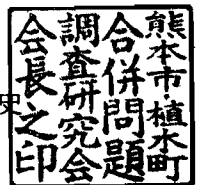 熊本市・植木町
合併問題
調査研究会
会長之印